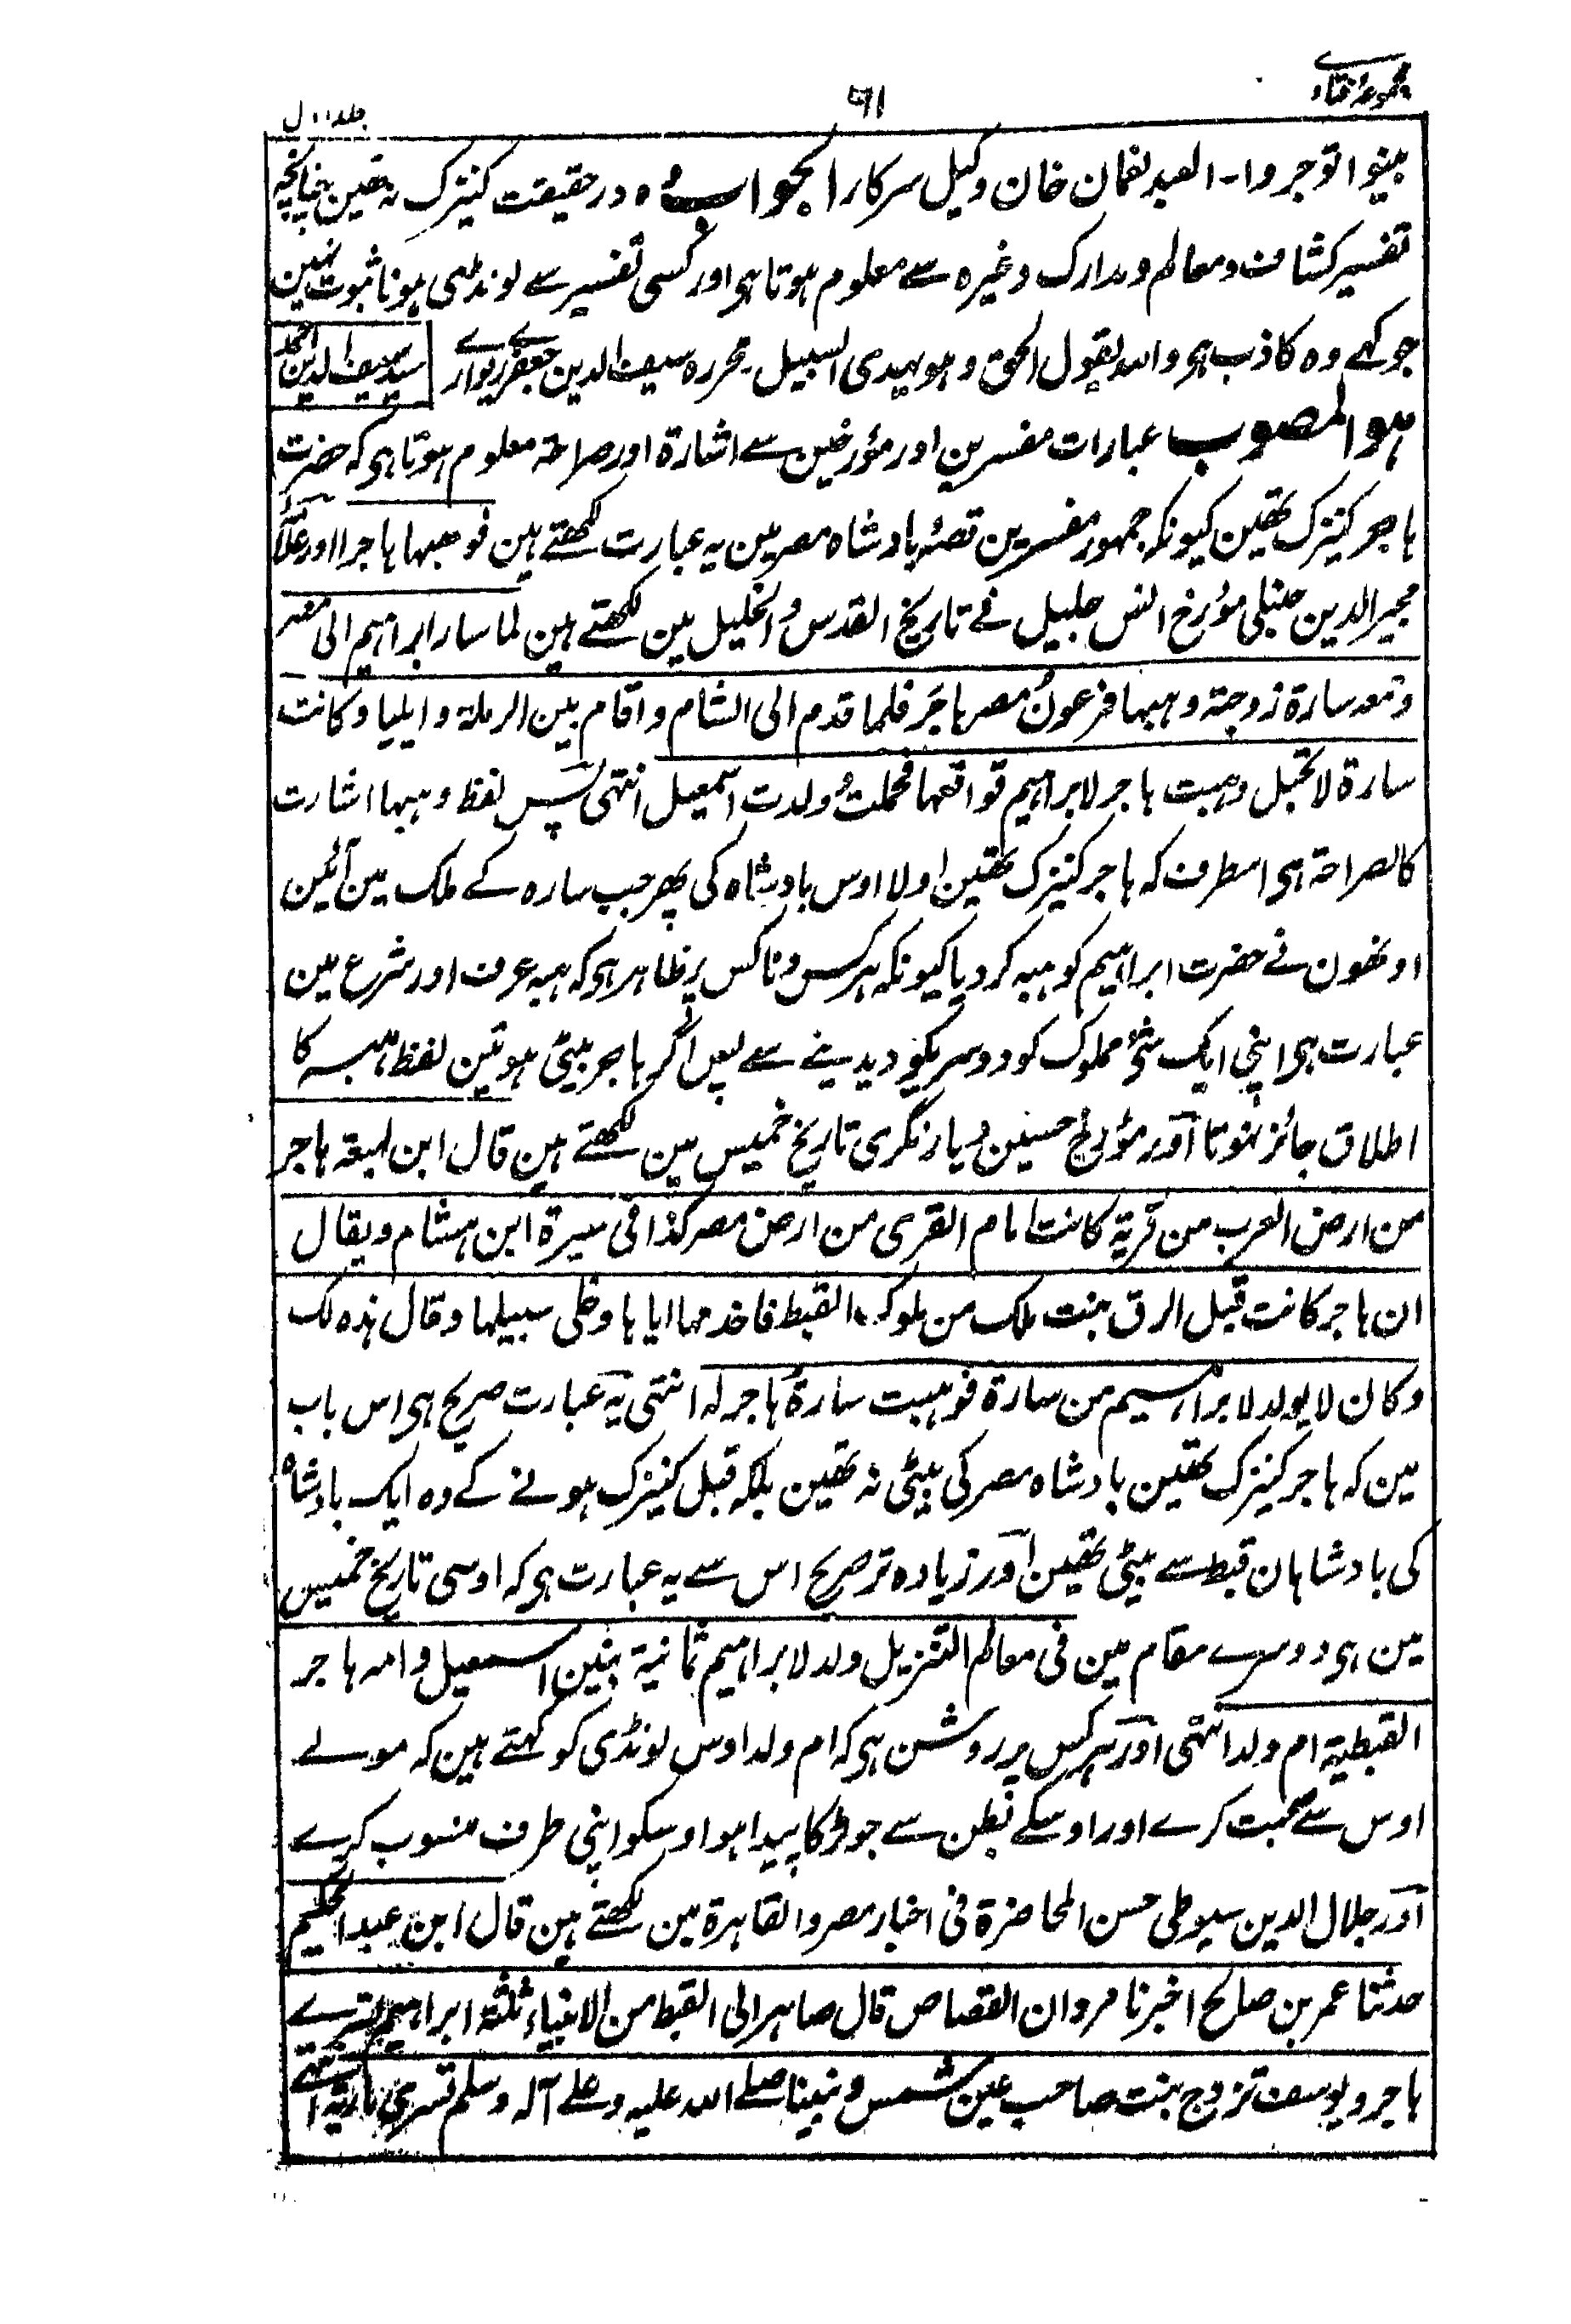 مجموعۂ فتاوے
۶۱
جلد اول
بینوا توجروا۔ العبد لقمان خان وکیل سرکار الجواب وہ درحقیقت کنیزک نہ تھین چنانچہ
تفسیر کشاف ومعالم ومدارک وغیرہ سے معلوم ہوتا ہی اور کسی تفسیر سے لونڈی ہونا ثبوت نہین
جو کہے وہ کاذب ہی واللہ یقول الحق وہو یہدی السبیل۔ حررہ سیف الدین جعفر
سید سیف الدین احمد
ہو المصوب عبارات مفسرین اور مؤرخین سے اشارۃ اور صراحۃ معلوم ہوتا ہی کہ حضرت
ہاجر کنیزک تھین کیونکہ جمہور مفسرین قصۂ بادشاہ مصر مین یہ عبارت لکھتے ہین فوہبہا ہاجرا اور علامۂ
مجیر الدین حنبلی مؤرخ انس جلیل فے تاریخ القدس والخلیل مین لکھتے ہین لما سار ابراہیم الی مصر
ومعہ سارۃ زوجتہ وہبہا فرعون مصر ہاجر فلما قدم الی الشام واقام بین الرملۃ وایلیا وکانت
سارۃ لا تحبل وہبت ہاجر لابراہیم فواقعہا فحملت وولدت اسمعیل انتہی پس لفظ وہبہا اشارت
کالصراحۃ ہی اسطرف کہ ہاجر کنیزک تھین اولا اوس بادشاہ کی پھر جب سارہ کے ملک مین آئین
اونھون نے حضرت ابراہیم کو ہبہ کردیا کیونکہ ہر کس وناکس پر ظاہر ہی کہ ہبہ عرف اور شرع مین
عبارت ہی اپنی ایک شئ مملوک کو دوسریکو دیدینے سے پس اگر ہاجر بیٹی ہوتین لفظ ہبہ کا
اطلاق جائز نہوتا اور مؤرخ حسین دیار بکری تاریخ خمیس مین لکھتے ہین قال ابن لہیعۃ ہاجر
من ارض العرب من قریۃ کانت امام القری من ارض مصر کذا فی سیرۃ ابن ہشام ویقال
ان ہاجر کانت قبل الرق بنت ملک من ملوک القبط فاخدمہا ایاہا وخلی سبیلہا وقال ہذہ لک
وکان لا یولد لابراہیم من سارۃ فوہبت سارۃ ہاجر لہ انتہی یہ عبارت صریح ہی اس باب
مین کہ ہاجر کنیزک تھین بادشاہ مصر کی بیٹی نہ تھین بلکہ قبل کنیزک ہونے کے وہ ایک بادشاہ
کی بادشاہان قبط سے بیٹی تھین اور زیادہ تر صریح اس سے یہ عبارت ہی کہ اوسی تاریخ خمیس
مین ہی دوسرے مقام مین فی معالم التنزیل ولد لابراہیم ثمانیۃ بنین اسمعیل وامہ ہاجر
القبطیۃ ام ولد انتہی اور ہر کس پر روشن ہی کہ ام ولد اوس لونڈی کو کہتے ہین کہ مولے
اوس سے صحبت کرے اور اوسکے بطن سے جو لڑکا پیدا ہو اوسکو اپنی طرف منسوب کرے
اور جلال الدین سیوطی حسن المحاضرۃ فی اخبار مصر والقاہرۃ مین لکھتے ہین قال ابن عبد الحکیم
حدثنا عمر بن صالح اخبرنا مروان القصاص قال صاہر الی القبط من الانبیاء ثلثۃ ابراہیم تسرے
ہاجر ویوسف تزوج بنت صاحب عین شمس ونبینا صلے اللہ علیہ وعلے آلہ وسلم تسری ماریۃ انتہے